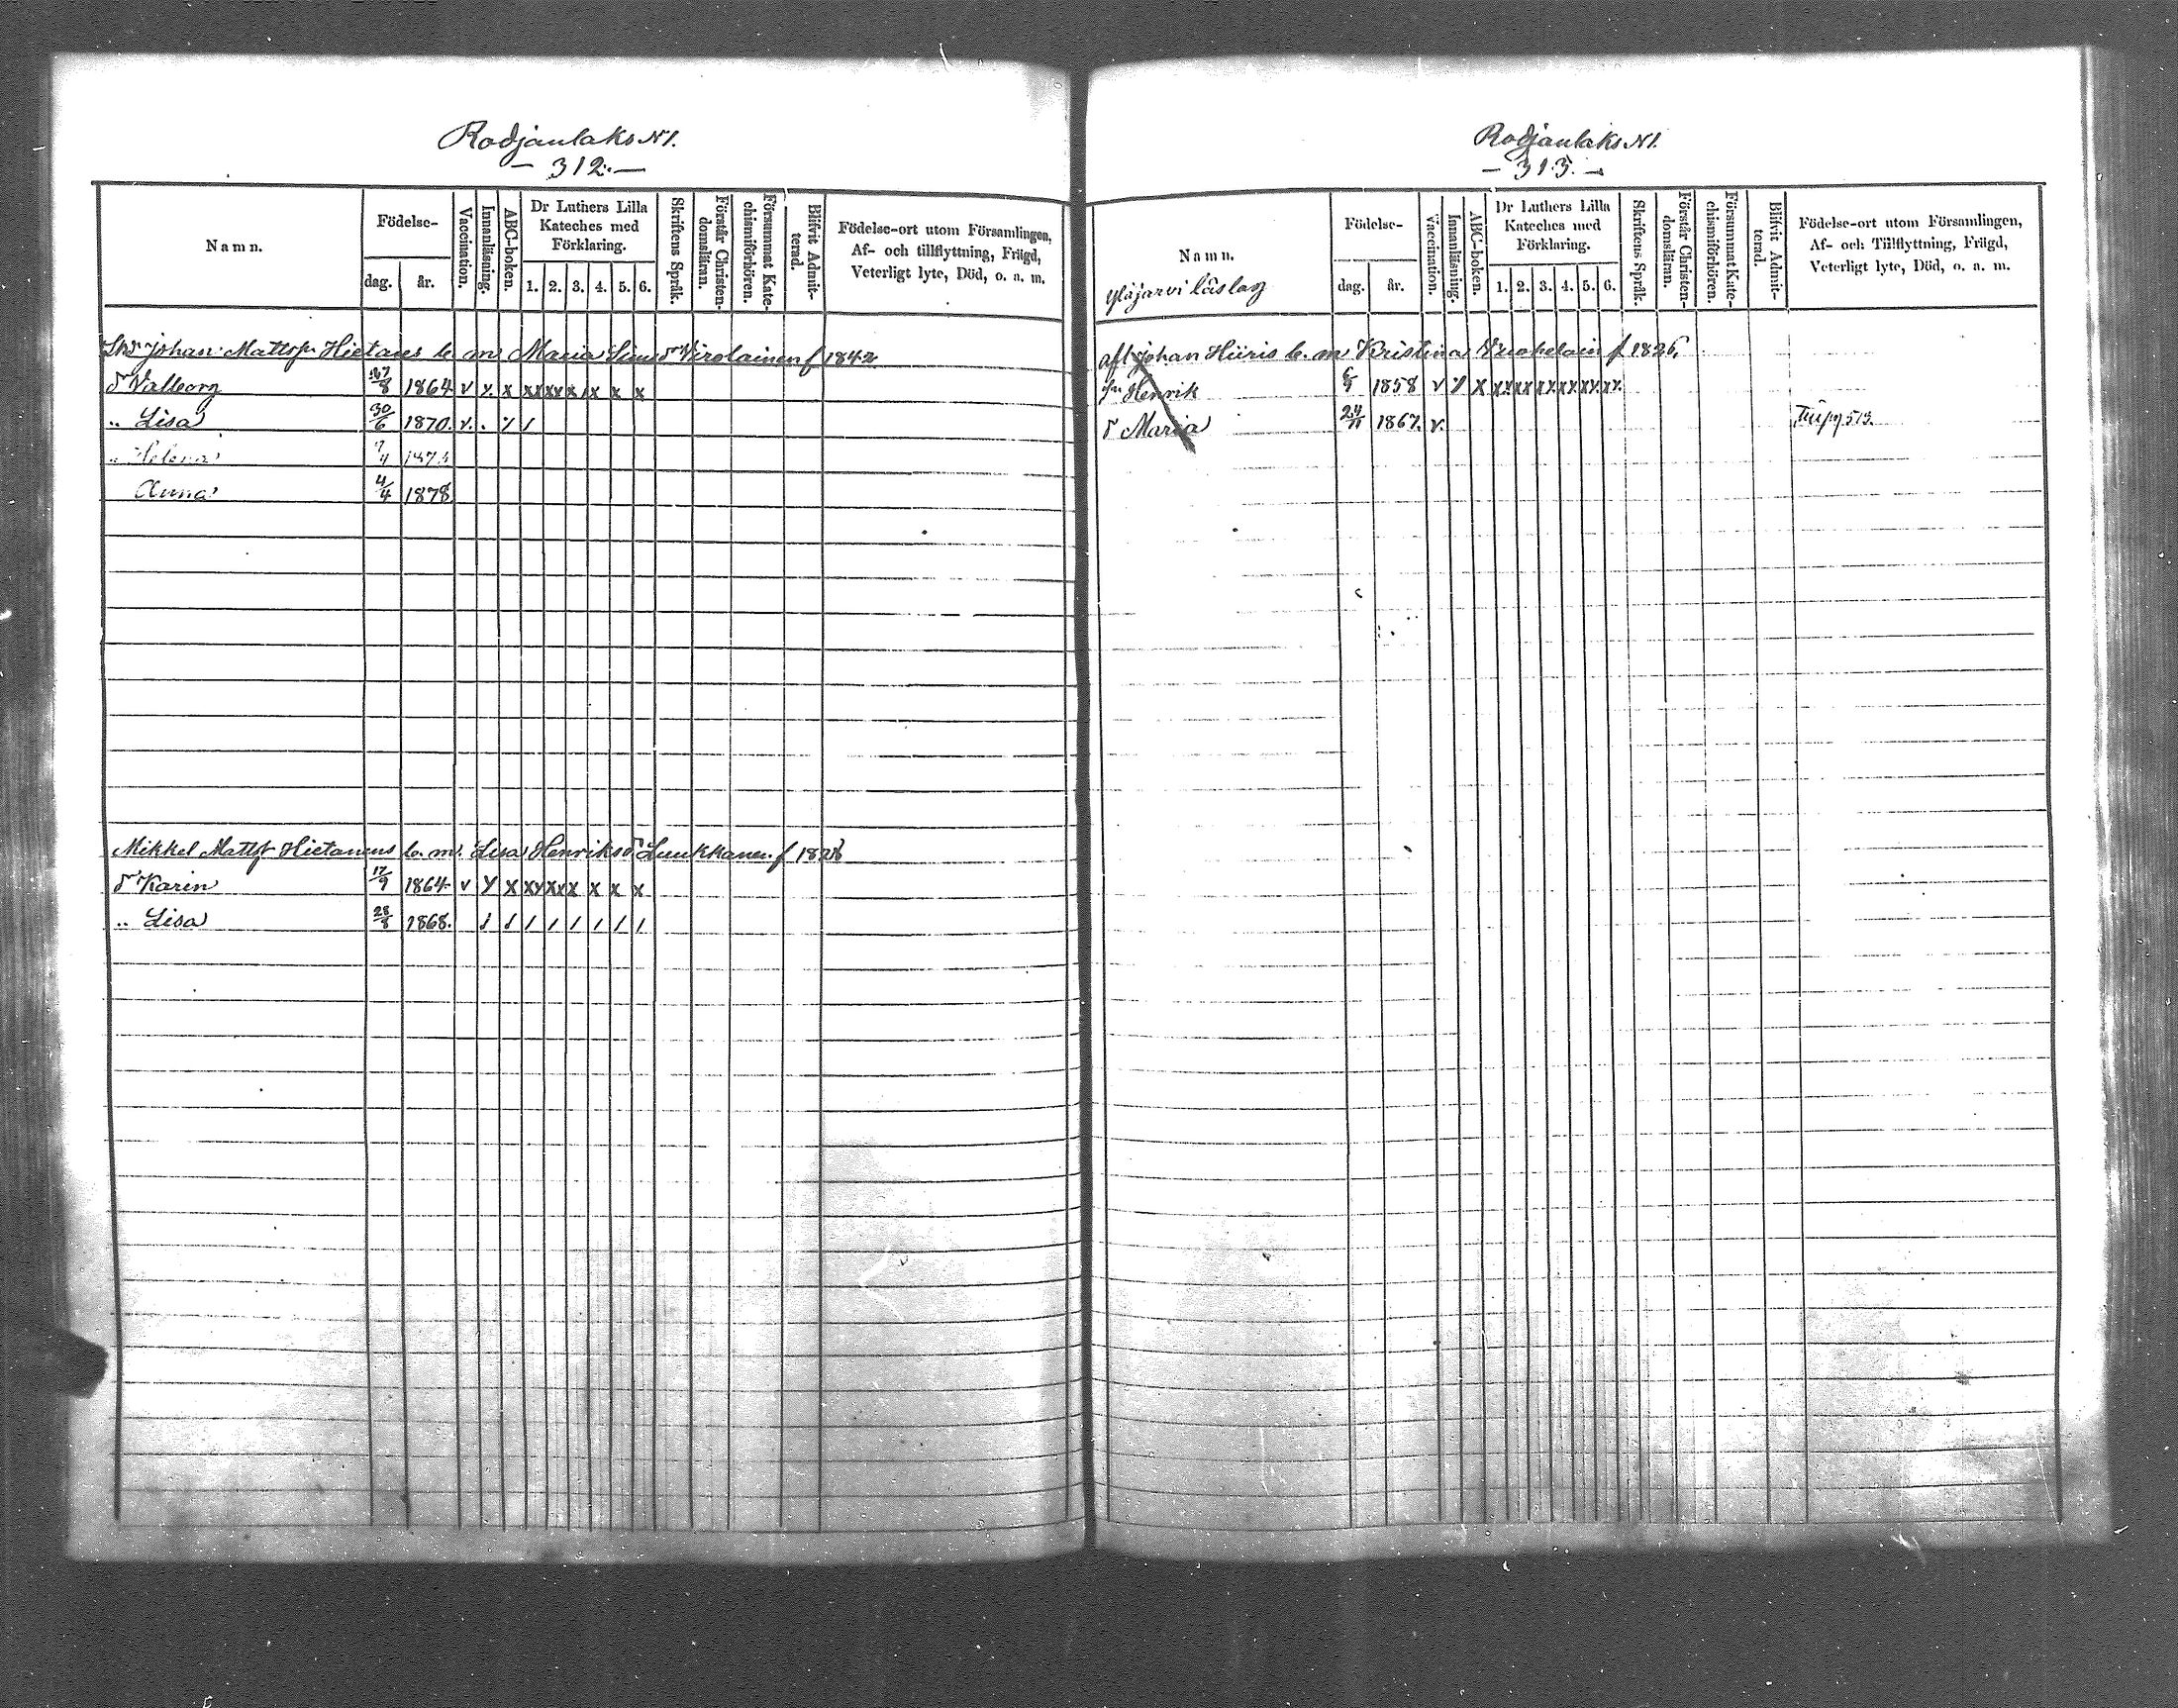 Rodjanlaks N1.
— 312. —
Namn.
Födelse-
dag.
år.
Vaccination.
Innanläsning.
ABC-boken.
Dr Luthers Lilla Kateches med Förklaring.
1. 2. 3. 4. 5. 6.
Skriftens Språk.
Förstår Christendomsläran.
Försummat Katechismiförhören.
Blifvit Admitterad.
Födelse-ort utom Församlingen,
Af- och tillflyttning, Frägd,
Veterligt lyte, Död, o. a. m.
Johan Mattss Hietanes b. m Maria Simsdr Virolainen f 1842
dr Valborg 8 1864 v x x xx xx x x x x
" Lisa 30/6 1870. v. . / /
" Helena 7/4
Anna 4/4 1878
Mikkel Mattss Hietanens b. m. Lisa Henriksdr Luukkanen f 1826
dr Karin 17/9 1864 v x x xx xx x x x x
" Lisa 28/8 1868. / / / / / / / /
Rodjanlaks N1.
— 313. —
Namn.
Yläjarvi läslag
Födelse-
dag.
år.
Vaccination.
Innanläsning.
ABC-boken.
Dr Luthers Lilla Kateches med Förklaring.
1. 2. 3. 4. 5. 6.
Skriftens Språk.
Förstår Christendomsläran.
Försummat Katechismiförhören.
Blifvit Admitterad.
Födelse-ort utom Församlingen,
Af- och Tillflyttning, Frägd,
Veterligt lyte, Död, o. a. m.
afl Johan Hiiris b. m Kristina f 1826
sn Henrik 6/9 1858 v x x xx xx xx xx xx xx
dr Maria 24/11 1867. v. Till pg 513.